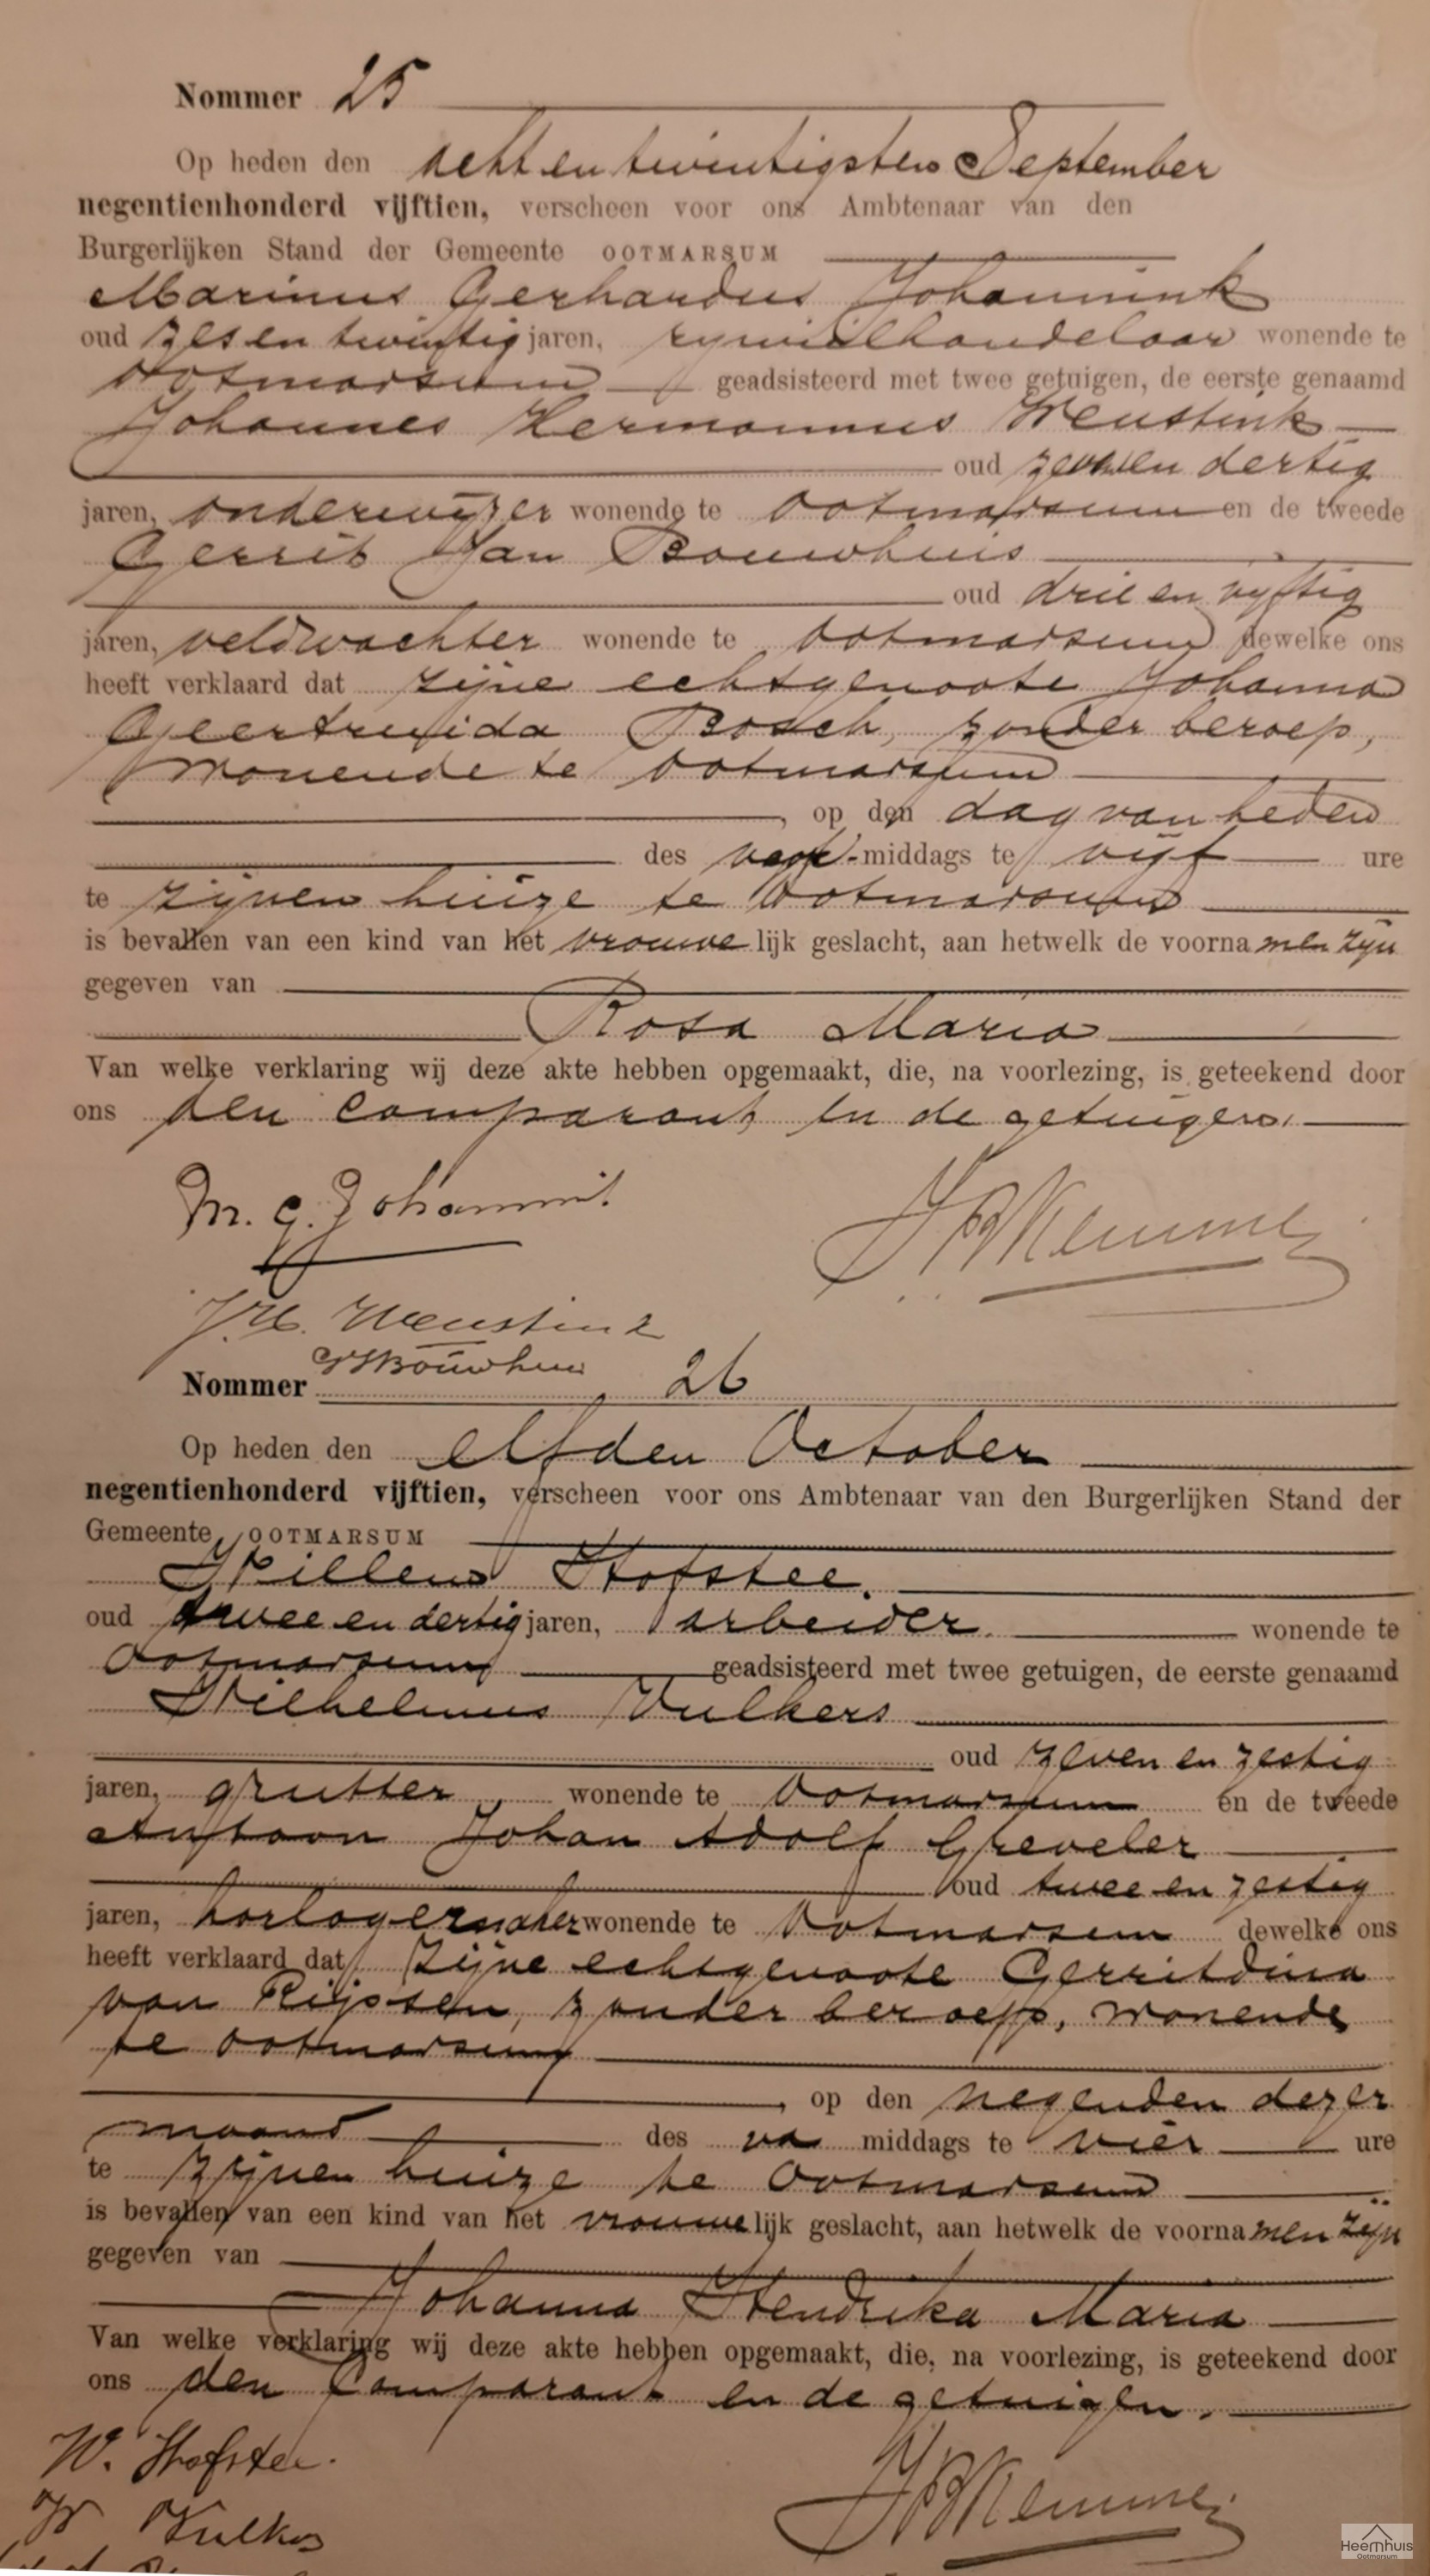 Nommer 25
Op heden den achtentwintigsten September
negentienhonderd vijftien, verscheen voor ons Ambtenaar van den
Burgerlijken Stand der Gemeente OOTMARSUM
Marinus Gerhardus Johannink
oud zesentwintig jaren, rijwielhandelaar wonende te
Ootmarsum geadsisteerd met twee getuigen, de eerste genaamd
Johannes Hermannus Weustink
oud zevenendertig
jaren, onderwijzer wonende te Ootmarsum en de tweede
Gerrit Jan Bouwhuis
oud drieenvijftig
jaren, veldwachter wonende te Ootmarsum dewelke ons
heeft verklaard dat zijne echtgenoote Johanna
Geertruida Bosch, zonder beroep,
wonende te Ootmarsum
, op den dag van heden
des voor-middags te vijf ure
te zijnen huize te Ootmarsum
is bevallen van een kind van het vrouwelijk geslacht, aan hetwelk de voornamen zijn
gegeven van
Rosa Maria
Van welke verklaring wij deze akte hebben opgemaakt, die, na voorlezing, is geteekend door
ons den comparant en de getuigen.
M. G. Johannink
J.H. Weustink
GJ Bouwhuis
Nommer 26
Op heden den elfden October
negentienhonderd vijftien, verscheen voor ons Ambtenaar van den Burgerlijken Stand der
Gemeente OOTMARSUM
Willem Hofstee,
oud tweeendertig jaren, arbeider wonende te
Ootmarsum geadsisteerd met twee getuigen, de eerste genaamd
Wilhelmus Vulkers
oud zevenenzestig
jaren, grutter wonende te Ootmarsum en de tweede
Antoon Johan Adolf Greveler
oud tweeenzestig
jaren, horlogemaker wonende te Ootmarsum dewelke ons
heeft verklaard dat zijne echtgenoote Gerritdina
van Rijssen, zonder beroep, wonende
te Ootmarsum
, op den negenden dezer
maand des na middags te vier ure
te zijnen huize te Ootmarsum
is bevallen van een kind van het vrouwelijk geslacht, aan hetwelk de voornamen zijn
gegeven van
Johanna Hendrika Maria
Van welke verklaring wij deze akte hebben opgemaakt, die, na voorlezing, is geteekend door
ons den Comparant en de getuigen.
W. Hofstee.
W Vulkers
Heemhuis
Ootmarsum